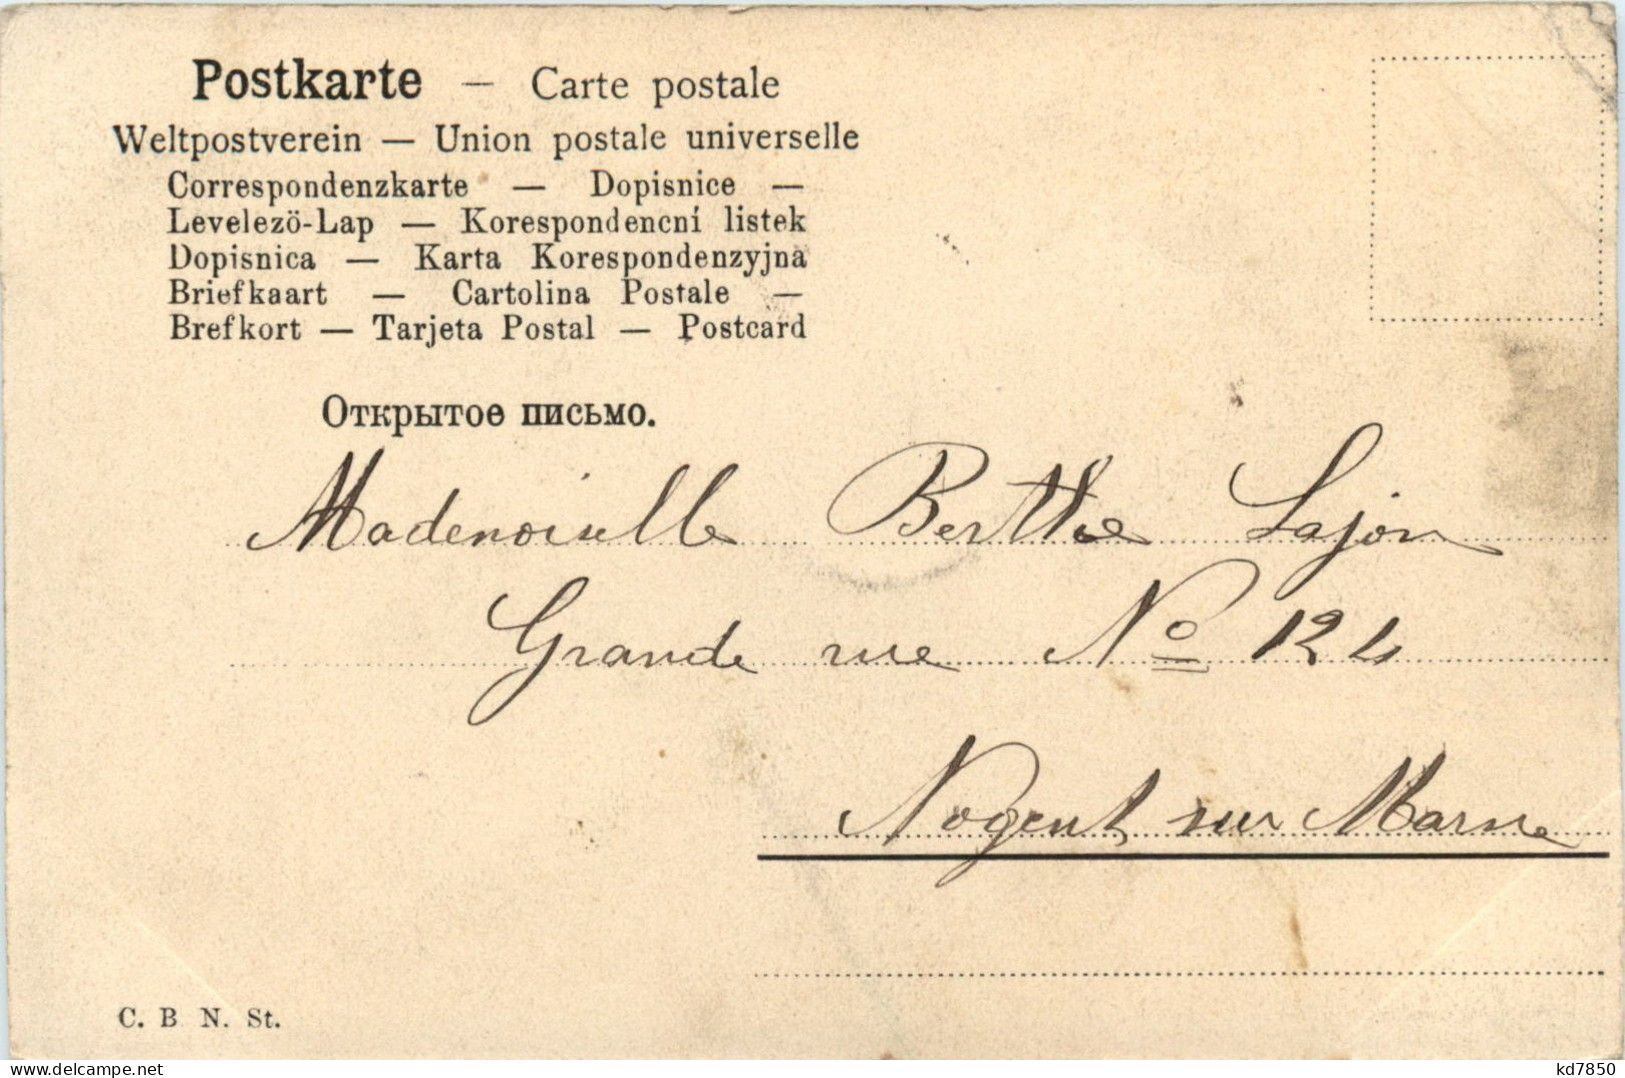 Postkarte — Carte postale
Weltpostverein — Union postale universelle
Correspondenzkarte — Dopisnice —
Levelezö-Lap — Korespondencní listek
Dopisnica — Karta Korespondenzyjna
Briefkaart — Cartolina Postale —
Brefkort — Tarjeta Postal — Postcard
Открытое письмо.
Mademoiselle Berthe Lajon
Grande rue No 124
Nogent sur Marne
C. B N. St.
delcampe.net
kd7850